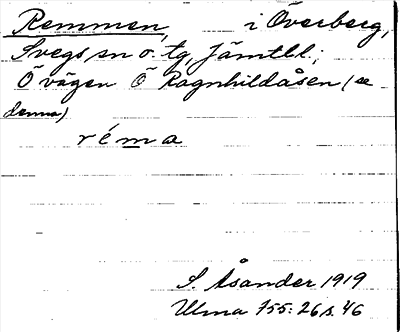 Remmen, i Överberg,
Svegs sn o. tg, Jämtl l.;
Ö vägen Ö Ragnhildåsen (se
denna)
réma
S. Åsander 1919
Ulma 755: 26 s. 46